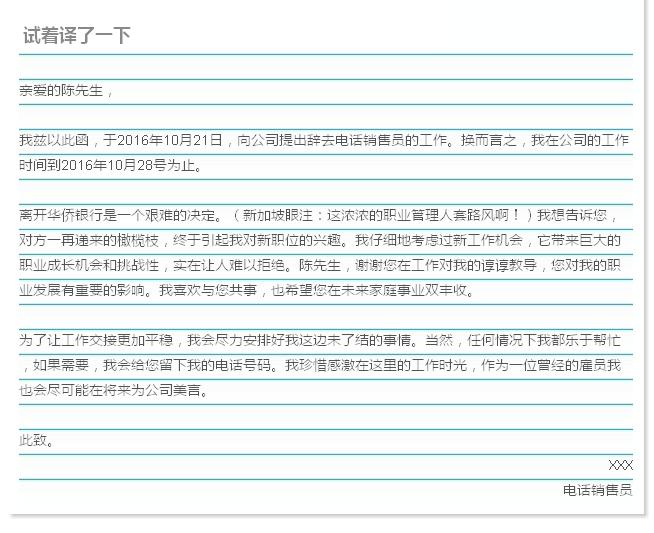 试着译了一下
亲爱的陈先生，
我兹以此函，于2016年10月21日，向公司提出辞去电话销售员的工作。换而言之，我在公司的工作
时间到2016年10月28号为止。
离开华侨银行是一个艰难的决定。（新加坡眼注：这浓浓的职业管理人套路风啊！）我想告诉您，
对方一再递来的橄榄枝，终于引起我对新职位的兴趣。我仔细地考虑过新工作机会，它带来巨大的
职业成长机会和挑战性，实在让人难以拒绝。陈先生，谢谢您在工作对我的谆谆教导，您对我的职
业发展有重要的影响。我喜欢与您共事，也希望您在未来家庭事业双丰收。
为了让工作交接更加平稳，我会尽力安排好我这边未了结的事情。当然，任何情况下我都乐于帮忙
，如果需要，我会给您留下我的电话号码。我珍惜感激在这里的工作时光，作为一位曾经的雇员我
也会尽可能在将来为公司美言。
此致。
XXX
电话销售员